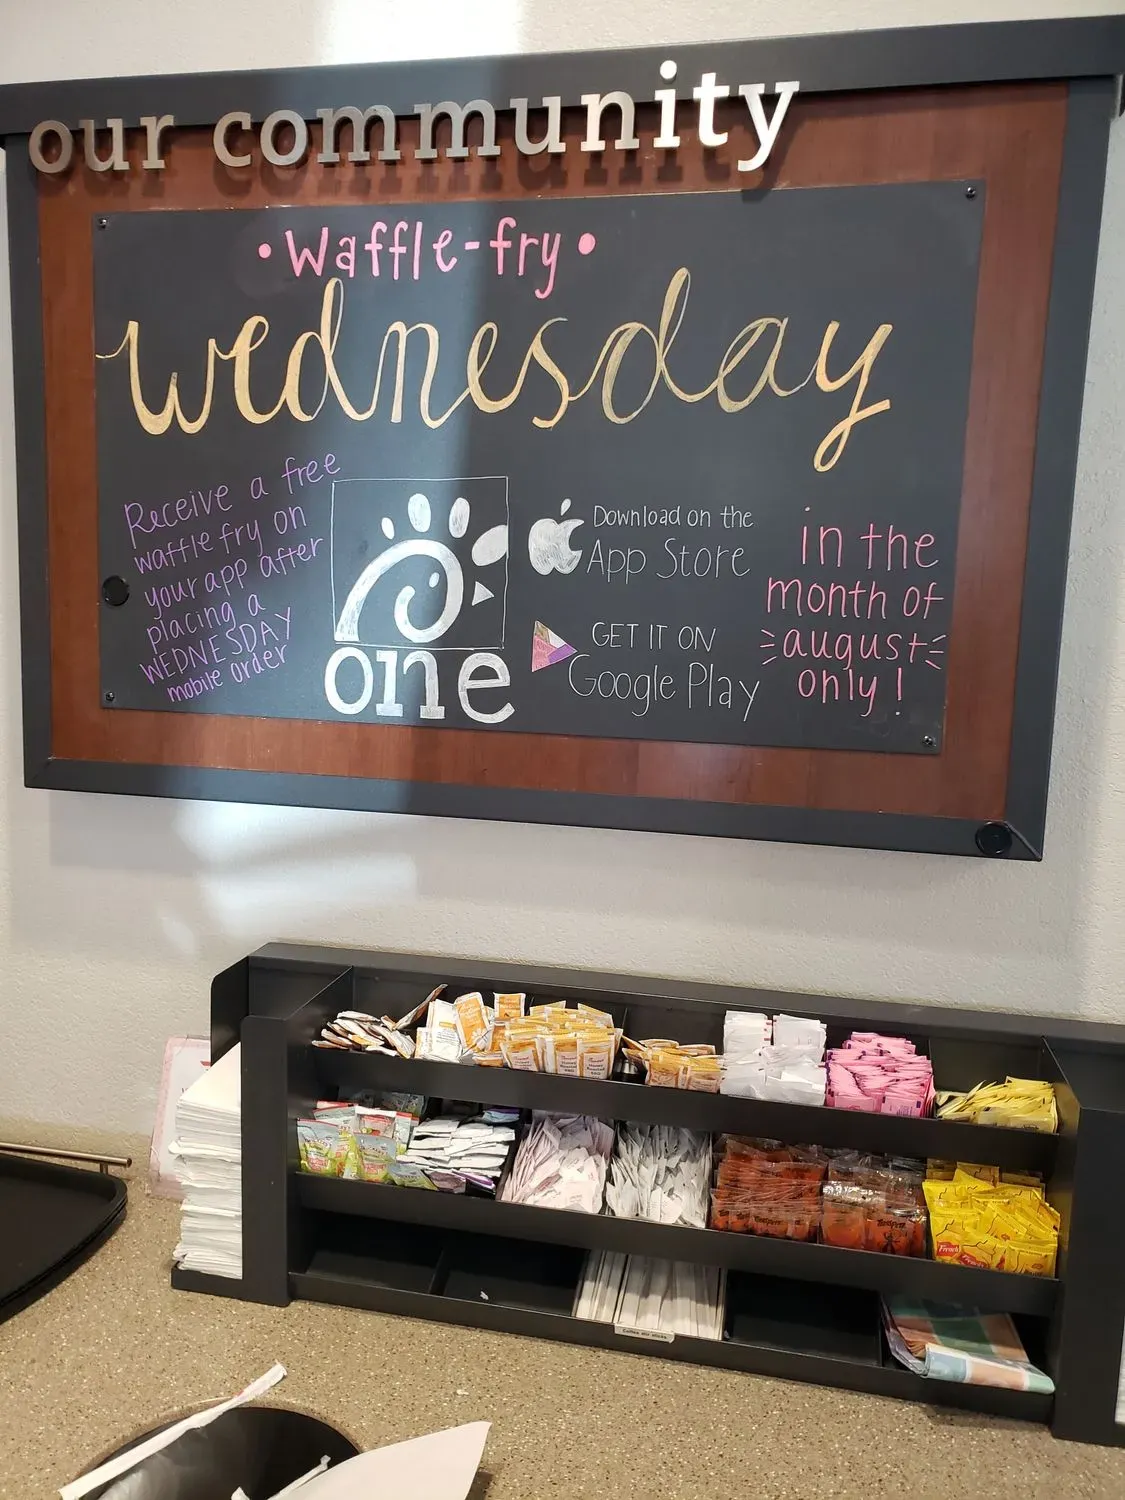 our community
• Waffle-fry •
wednesday
Receive a free
waffle fry on
your app after
placing a
WEDNESDAY
mobile order
one
Download on the
App Store
GET IT ON
Google Play
in the
month of
august
only!
Coffee stir sticks
French's